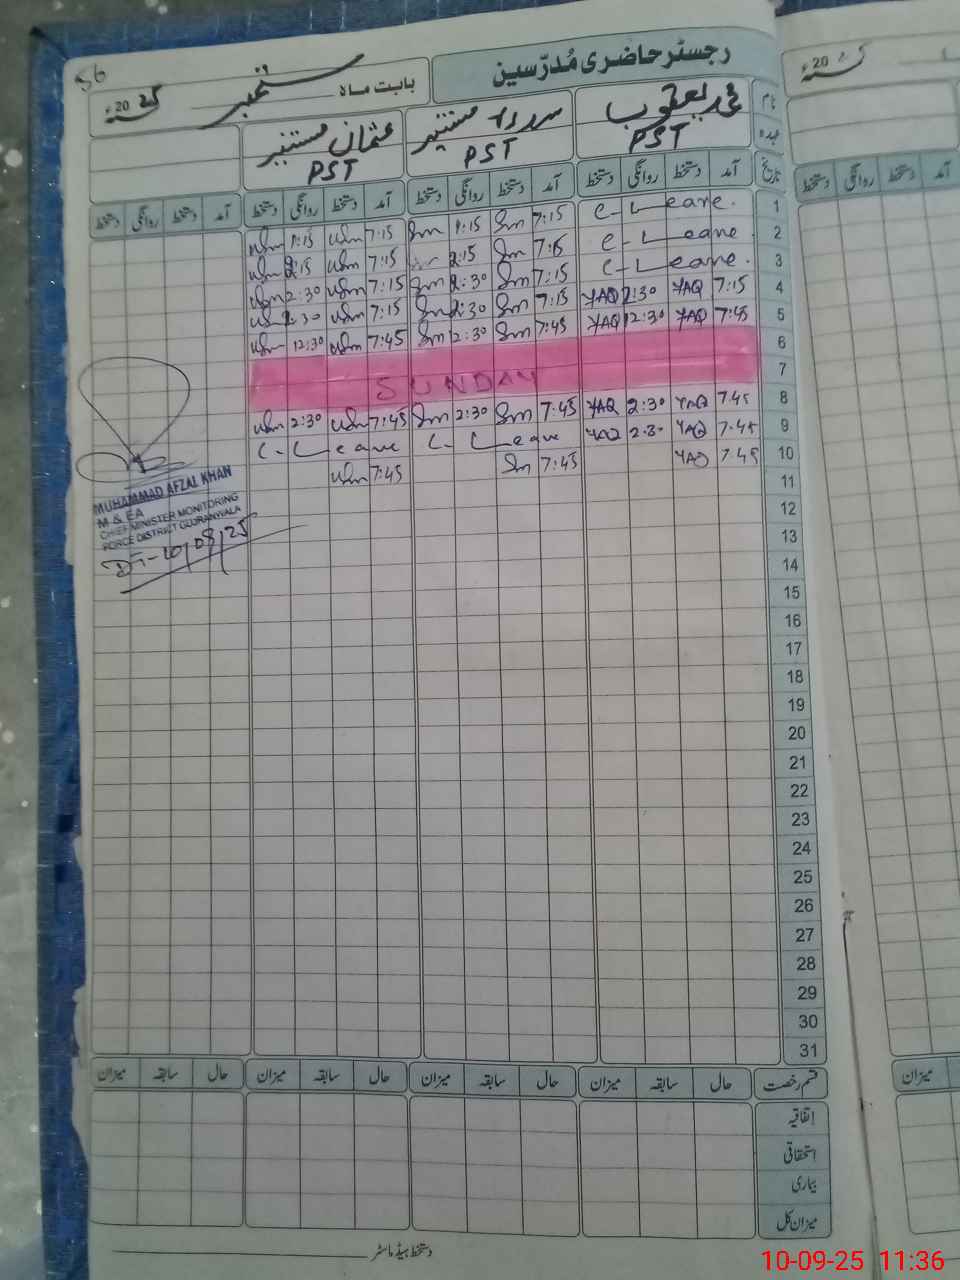 56
رجسٹر حاضری مُدرّسین
بابت ماہ ستمبر 2025ء
نام محمد یعقوب عثمان مستنیر
عہدہ PST PST PST
تاریخ آمد دستخط روانگی دستخط آمد دستخط روانگی دستخط آمد دستخط روانگی دستخط آمد دستخط روانگی دستخط
1 C-Leave. 7:15 Sm 1:15 Sm 7:15 Usm 1:15 Usm
2 C-Leave 7:15 Sm 2:15 7:15 Usm 2:15 Usm
3 C-Leave. 7:15 Sm 2:30 Sm 7:15 Usm 2:30 Usm
4 7:15 YAQ 2:30 YAQ 7:15 Sm 2:30 Sm 7:15 Usm 2:30 Usm
5 7:45 YAQ 12:30 YAQ 7:45 Sm 12:30 Sm 7:45 Usm 12:30 Usm
6
7 SUNDAY
8 7.45 YAQ 2:30 YAQ 7:45 Sm 2:30 Sm 7:45 Usm 2:30 Usm
9 7.45 YAQ 2.30 YAQ C-Leave C-Leave
10 7.45 YAQ 7:45 Sm 7:45 Usm
11
12
13
14
15
16
17
18
19
20
21
22
23
24
25
26
27
28
29
30
31
MUHAMMAD AFZAL KHAN
M & EA
CHIEF MINISTER MONITORING
FORCE DISTRICT GUJRANWALA
DT-10/09/25
قسم رخصت حال سابقہ میزان حال سابقہ میزان حال سابقہ میزان حال سابقہ میزان
اتفاقیہ
استحقاقی
بیماری
میزان کل
دستخط ہیڈ ماسٹر
20ء
آمد دستخط روانگی دستخط
میزان
10-09-25 11:36